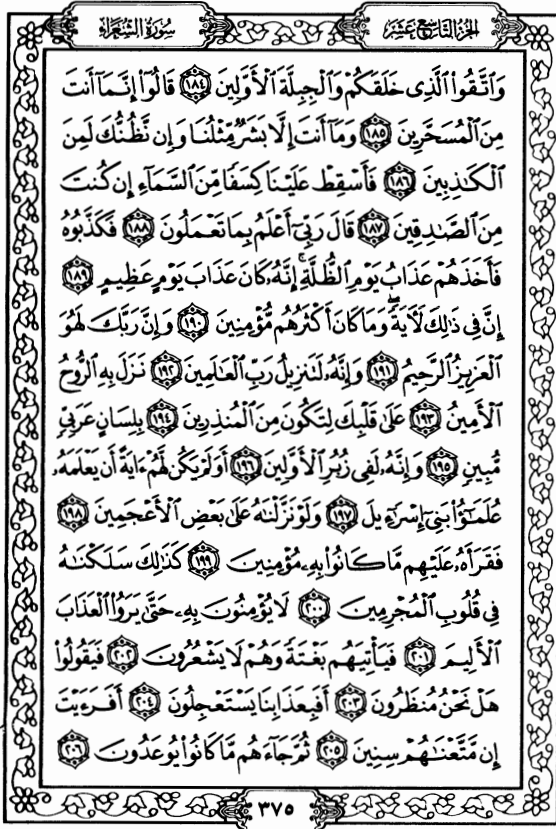 الجزء التاسع عشر
سورة الشعراء
وَاتَّقُوا۟ الَّذِى خَلَقَكُمْ وَالْجِبِلَّةَ الْأَوَّلِينَ ١٨٤ قَالُوٓا۟ إِنَّمَآ أَنتَ
مِنَ الْمُسَحَّرِينَ ١٨٥ وَمَآ أَنتَ إِلَّا بَشَرٌ مِّثْلُنَا وَإِن نَّظُنُّكَ لَمِنَ
الْكَٰذِبِينَ ١٨٦ فَأَسْقِطْ عَلَيْنَا كِسَفًا مِّنَ السَّمَآءِ إِن كُنتَ
مِنَ الصَّٰدِقِينَ ١٨٧ قَالَ رَبِّىٓ أَعْلَمُ بِمَا تَعْمَلُونَ ١٨٨ فَكَذَّبُوهُ
فَأَخَذَهُمْ عَذَابُ يَوْمِ الظُّلَّةِ ۚ إِنَّهُۥ كَانَ عَذَابَ يَوْمٍ عَظِيمٍ ١٨٩
إِنَّ فِى ذَٰلِكَ لَءَايَةً ۖ وَمَا كَانَ أَكْثَرُهُم مُّؤْمِنِينَ ١٩٠ وَإِنَّ رَبَّكَ لَهُوَ
الْعَزِيزُ الرَّحِيمُ ١٩١ وَإِنَّهُۥ لَتَنزِيلُ رَبِّ الْعَٰلَمِينَ ١٩٢ نَزَلَ بِهِ الرُّوحُ
الْأَمِينُ ١٩٣ عَلَىٰ قَلْبِكَ لِتَكُونَ مِنَ الْمُنذِرِينَ ١٩٤ بِلِسَانٍ عَرَبِىٍّ
مُّبِينٍ ١٩٥ وَإِنَّهُۥ لَفِى زُبُرِ الْأَوَّلِينَ ١٩٦ أَوَلَمْ يَكُن لَّهُمْ ءَايَةً أَن يَعْلَمَهُۥ
عُلَمَٰٓؤُا۟ بَنِىٓ إِسْرَٰٓءِيلَ ١٩٧ وَلَوْ نَزَّلْنَٰهُ عَلَىٰ بَعْضِ الْأَعْجَمِينَ ١٩٨
فَقَرَأَهُۥ عَلَيْهِم مَّا كَانُوا۟ بِهِۦ مُؤْمِنِينَ ١٩٩ كَذَٰلِكَ سَلَكْنَٰهُ
فِى قُلُوبِ الْمُجْرِمِينَ ٢٠٠ لَا يُؤْمِنُونَ بِهِۦ حَتَّىٰ يَرَوُا۟ الْعَذَابَ
الْأَلِيمَ ٢٠١ فَيَأْتِيَهُم بَغْتَةً وَهُمْ لَا يَشْعُرُونَ ٢٠٢ فَيَقُولُوا۟
هَلْ نَحْنُ مُنظَرُونَ ٢٠٣ أَفَبِعَذَابِنَا يَسْتَعْجِلُونَ ٢٠٤ أَفَرَءَيْتَ
إِن مَّتَّعْنَٰهُمْ سِنِينَ ٢٠٥ ثُمَّ جَآءَهُم مَّا كَانُوا۟ يُوعَدُونَ ٢٠٦
٣٧٥